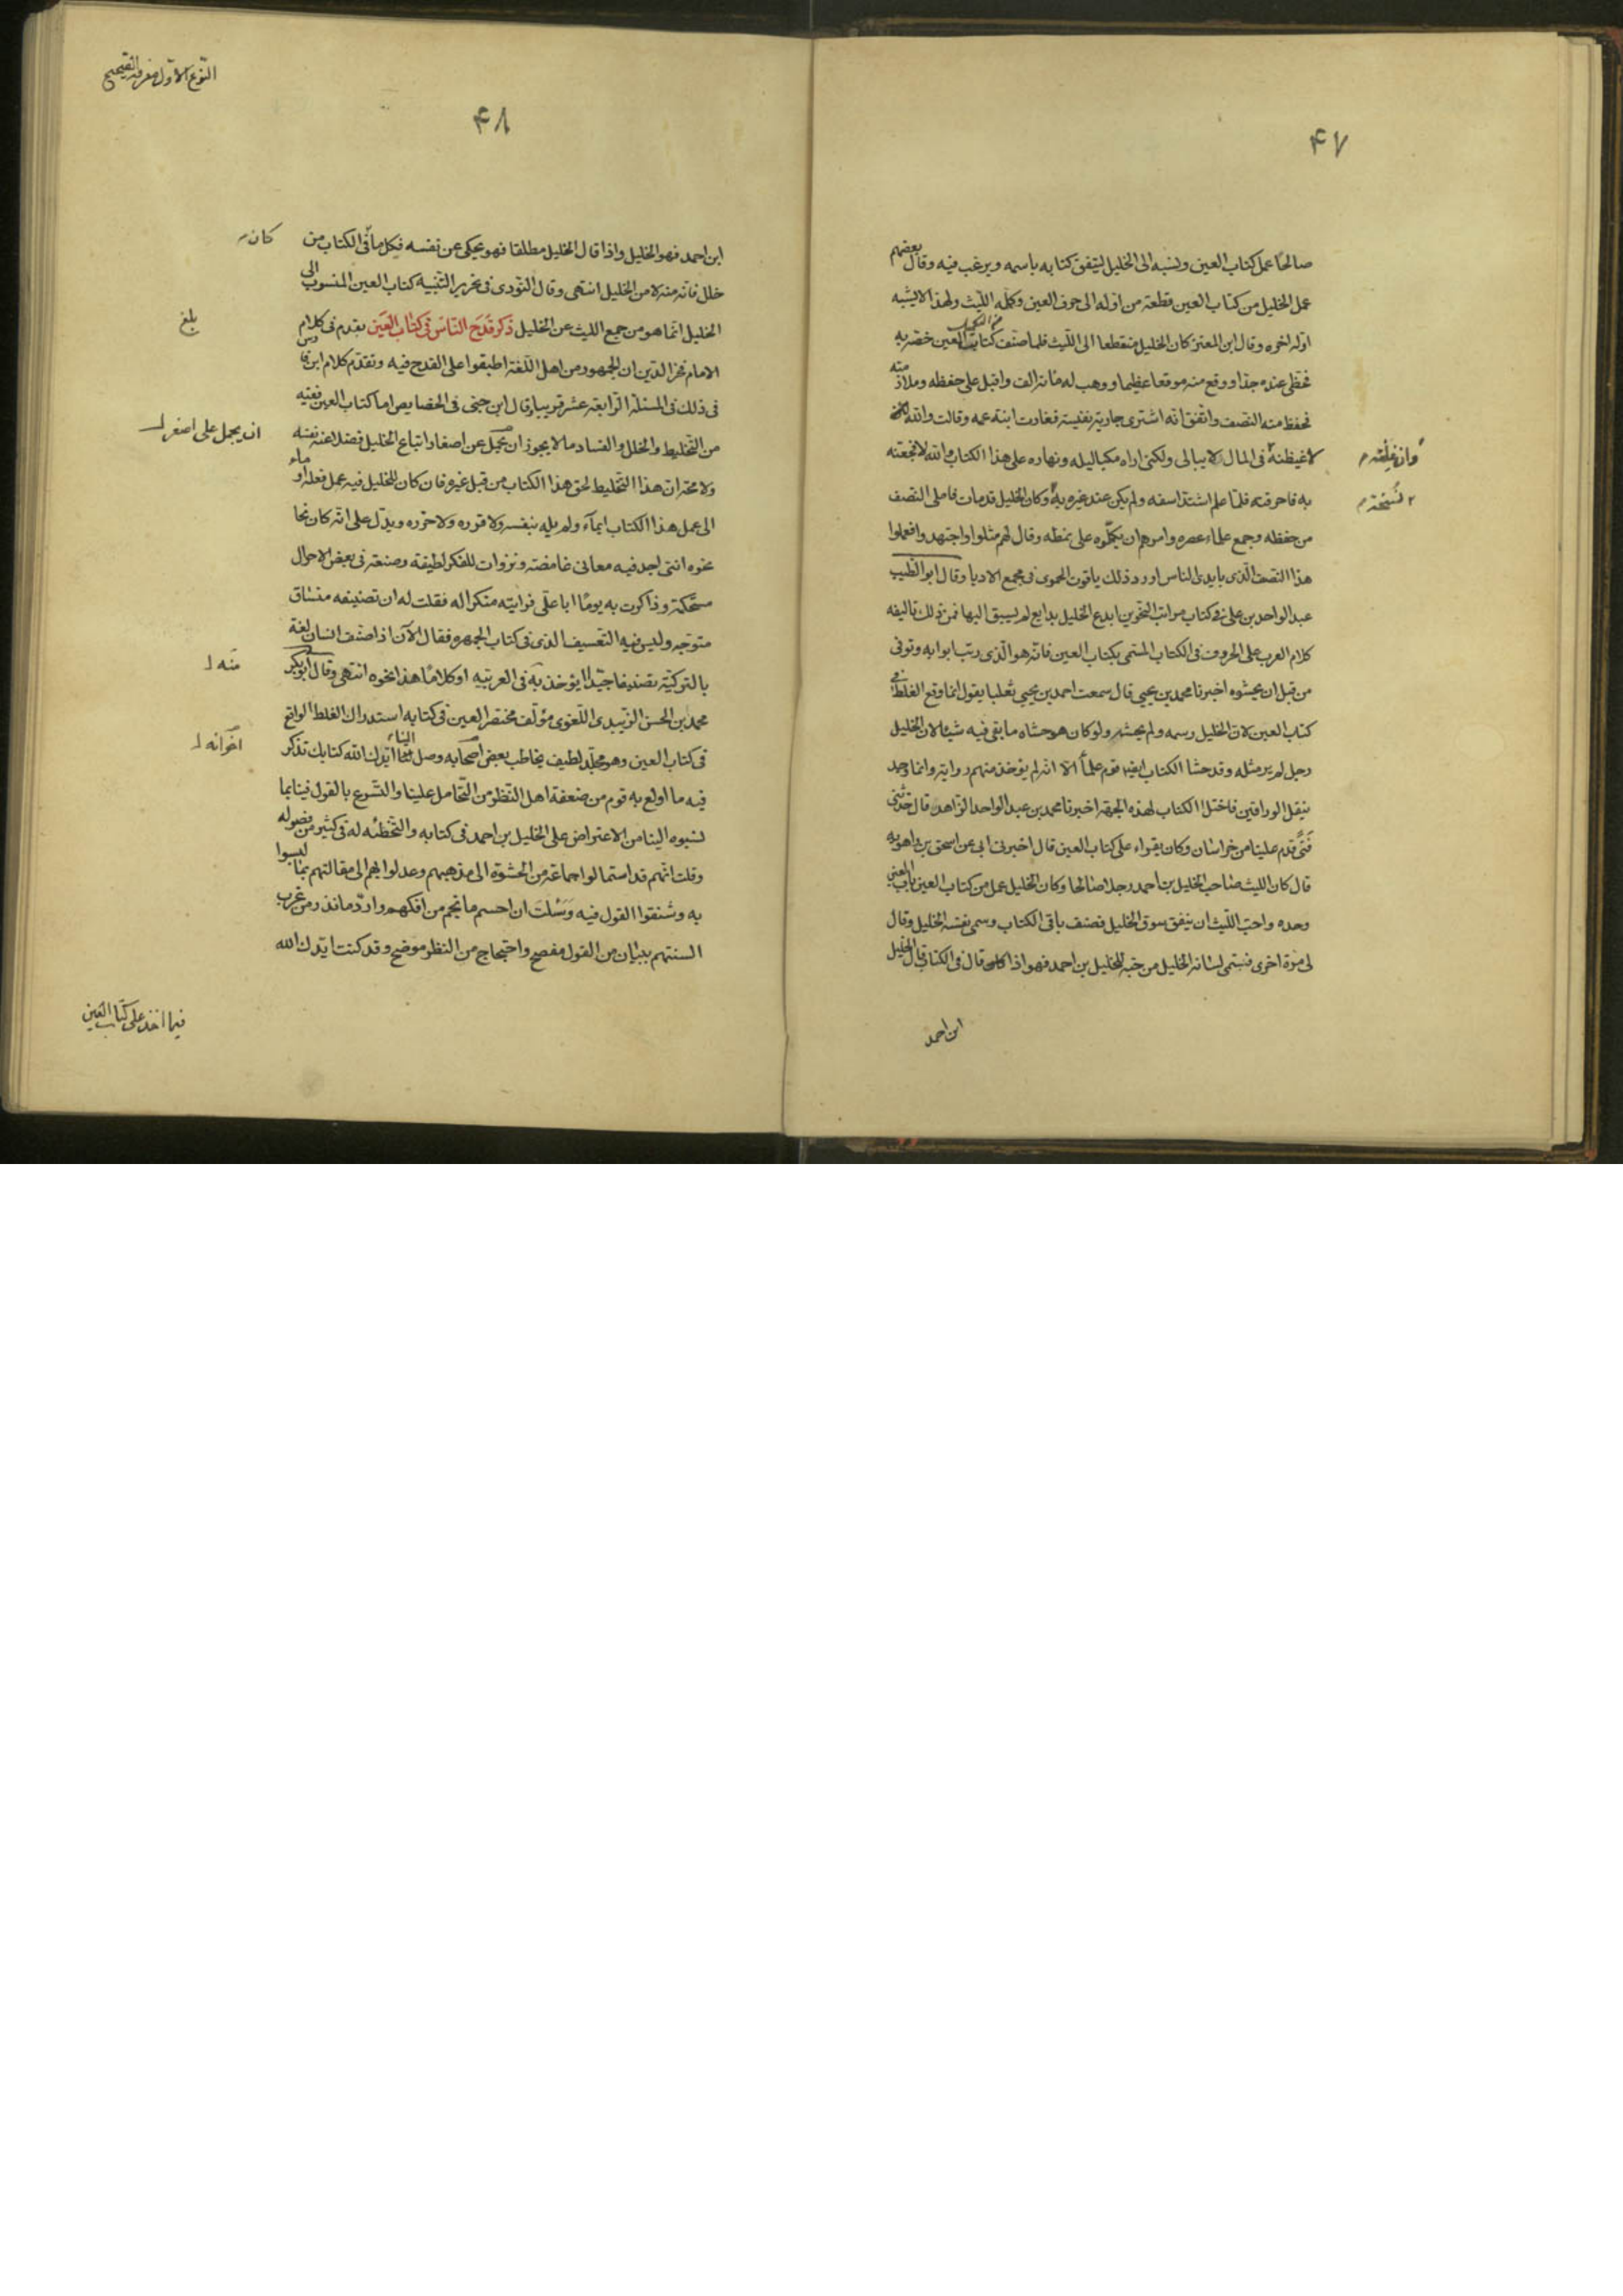 ۴۷
صالحًا عمل كتاب العين ونسبه الى الخليل لينفق كتابه باسمه ويرغب فيه وقال بعضهم
عمل الخليل من كتاب العين قطعة من اوله الى حرف العين وكمله الليث ولهذا لا يشبه
اوله اخره وقال ابن المعتز كان الخليل منقطعا الى الليث فلما صنف كتاب العين خصّه به
فحظى عنده جدا ووقع منه موقعا عظيما ووهب له مائة الف واقبل على حفظه وملازمته
فحفظ منه النصف واتفق انه اشترى جارية نفيسة فغارت ابنة عمه وقالت والله
لاغيظنه فى المال لا يبالى ولكنى اراه مكبا ليله ونهاره على هذا الكتاب والله لافجعنه
وان غظته
به فاحرقته فلما علم اشتد اسفه ولم يكن عند غيره به وكان الخليل قد مات فاملى النصف
نسخة
من حفظه وجمع علماء عصره وامرهم ان يكملوه على نمطه وقال لهم مثلوا واجتهدوا فعملوا
هذا النصف الذى بايدى الناس اورد ذلك ياقوت الحموى فى مجمع الادبا وقال ابو الطيب
عبد الواحد بن على فى كتاب مراتب النحويين ابدع الخليل بدايع لم يسبق اليها فمن ذلك تاليفه
كلام العرب على الحروف فى الكتاب المسمى بكتاب العين فانه هو الذى رتب ابوابه وتوفى
من قبل ان يحشوه اخبرنا محمد بن يحيى قال سمعت احمد بن يحيى ثعلبا يقول انما وقع الغلط فى
كتاب العين لان الخليل رسمه ولم يحشه ولو كان هو حشاه ما بقى فيه شيئا لان الخليل
رجل لم ير مثله وقد حشا الكتاب ايضا قوم علماء الا انه لم يوخذ منهم رواية وانما وجد
بنقل الوراقين فاختل الكتاب لهذه الجهة اخبرنا محمد بن عبد الواحد الزاهد قال حدثنى
فتى قدم علينا من خراسان وكان يقراء على كتاب العين قال اخبرنى ابى عن اسحق بن راهويه
قال كان الليث صاحب الخليل بن احمد رجلا صالحا وكان الخليل عمل من كتاب العين باب العين
وحده واحب الليث ان ينفق سوق الخليل فصنف باقى الكتاب وسمى نفسه الخليل وقال
لى مرة اخرى فسمى لسانه الخليل من حبه للخليل بن احمد فهو اذا قال فى الكتاب قال الخليل
ابن احمد
النوع الاول معرفة الصحيح
۴۸
ابن احمد فهو الخليل واذا قال الخليل مطلقا فهو يحكى عن نفسه فكل ما فى الكتاب من
كان
خلل فانه منه لا من الخليل انتهى وقال النووى فى تحرير التنبيه كتاب العين المنسوب الى
الخليل انما هو من جمع الليث عن الخليل ذكر قدح الناس فى كتاب العين تقدم فى كلام
بلغ
الامام فخر الدين ان الجمهور من اهل اللغة اطبقوا على القدح فيه وتقدم كلام ابن فارس
فى ذلك فى المسئلة الرابعة عشر قريبا وقال ابن جنى فى الخصايص اما كتاب العين ففيه
من التخليط والخلل والفساد ما لا يجوز ان يحمل عن اصغار اتباع الخليل فضلا عنه نفسه
ان يحمل على اصغر
ولا محة ان هذا التخليط لحق هذا الكتاب من قبل غيره فان كان للخليل فيه عمل فعله او ماء
الى عمل هذا الكتاب ايماء ولم يله بنفسه ولا قرره ولا حرره ويدل على انه كان نحا
نحوه اننى اجد فيه معانى غامضة ونزوات للفكر لطيفة وصنعة فى بعض الاحوال
مستحكمة وذاكرت به يوما ابا على فرايته منكرا له فقلت له ان تصنيفه منساق
متوجه وليس فيه التعسيف الذى فى كتاب الجمهرة فقال الآن اذا صنف انسان لغة
بالتركية تصنيفا جيدا ايوخذ به فى العربيه او كلاما هذا نحوه انتهى وقال ابو بكر
منه
محمد بن الحسن الزبيدى اللغوى مؤلف مختصر العين فى كتابه استدراك الغلط الواقع
فى كتاب العين وهو مجلد لطيف يخاطب بعض اصحابه وصل الينا ايدك الله كتابك تذكر
اخوانه
فيه ما اولع به قوم من ضعفة اهل النظر من التحامل علينا والتسرع بالقول فينا بما
نسبوه الينا من الاعتراض على الخليل بن احمد فى كتابه والتخطئه له فى كثير من فصوله
وقلت انهم قد استمالوا جماعة من الحشوة الى مذهبهم وعدلوا بهم الى مقالتهم بما لبسوا
به وشنقوا القول فيه وسئلت ان احسم ما نجم من افكهم واردّ ما نذر من غرب
السنتهم ببيان من القول مفصح واحتجاج من النظر موضح وقد كنت ايدك الله
فيما اخذ على كتاب العين